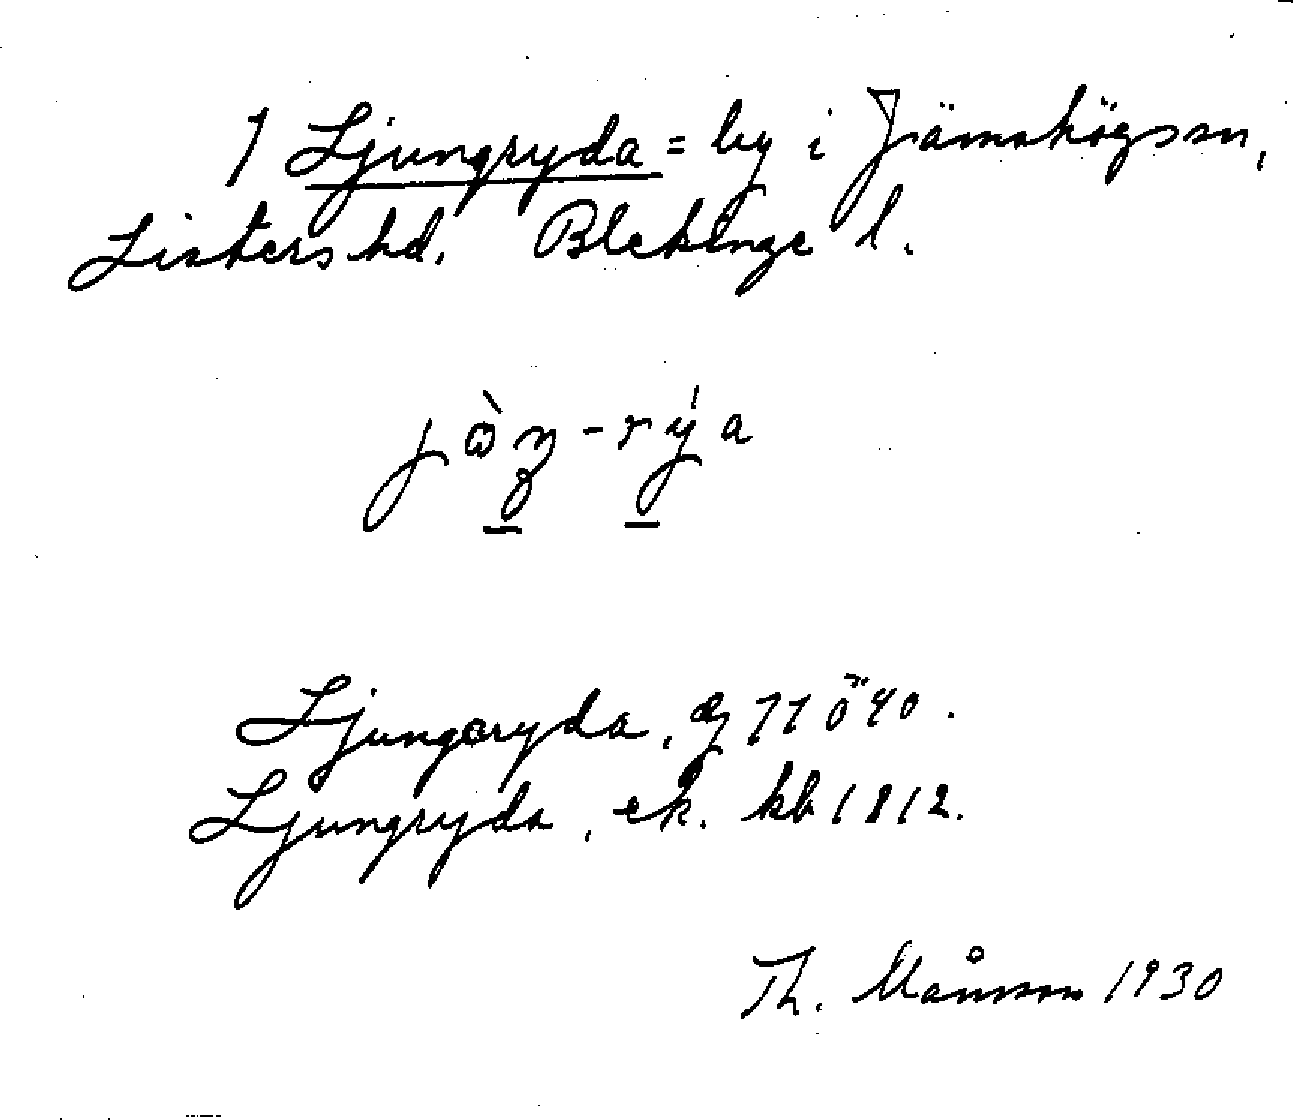 1 Ljungryda = by i Jämshögs sn,
Listers hd. Blekinge l.
jὼŋ-rýa
Ljungaryda,
Ljungryda, ek. kb 1812.
Th. Månsson 1930